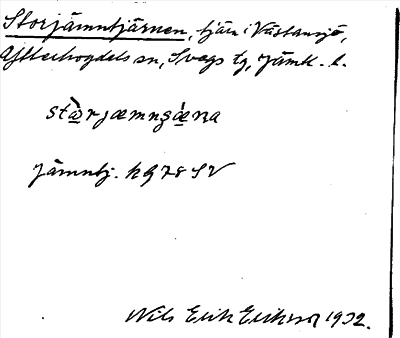 Storjämntjärnen, tjärn i Västansjö,
Ytterhogdals sn, Svegs tg, Jämtl. l.
stòrjæmnʒǽna
Jämntj. hg 78 SV
Nils Erik Eriksson 1932.